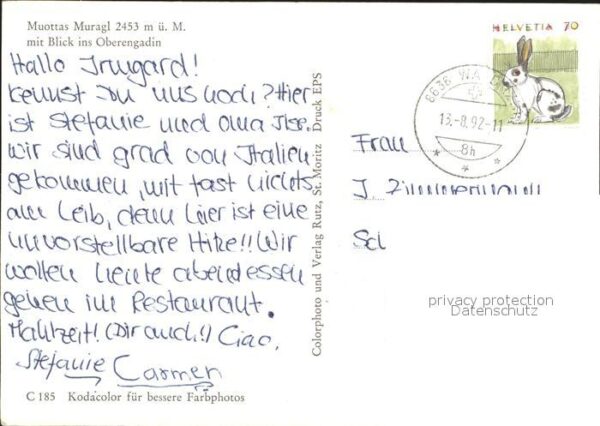 Muottas Muragl 2453 m ü. M.
mit Blick ins Oberengadin
Hallo Irmgard!
kennst Du uns noch? Hier
ist Stefanie und Oma Ilse.
Wir sind grad von Italien
gekommen, mit fast nichts
am Leib, denn hier ist eine
unvorstellbare Hitze!! Wir
wollen heute abend essen
gehen im Restaurant.
Mahlzeit! (Dir auch!) Ciao,
Stefanie Carmen
C 185 Kodacolor für bessere Farbphotos
Colorphoto und Verlag Rutz, St. Moritz Druck EPS
HELVETIA 70
8636 WALD
13.-8.92-11
8h
Frau
I. Zimmermann
Sch
privacy protection
Datenschutz